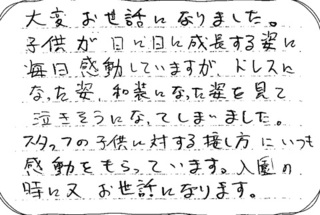 大変 お世話に なりました。
子供が 日に日に成長する姿に
毎日 感動していますが、ドレスに
なった姿、和装になった姿を見て
泣きそうになってしまいました。
スタッフの子供に対する接し方 にいつも
感動をもらっています。入園の
時に又 お世話になります。